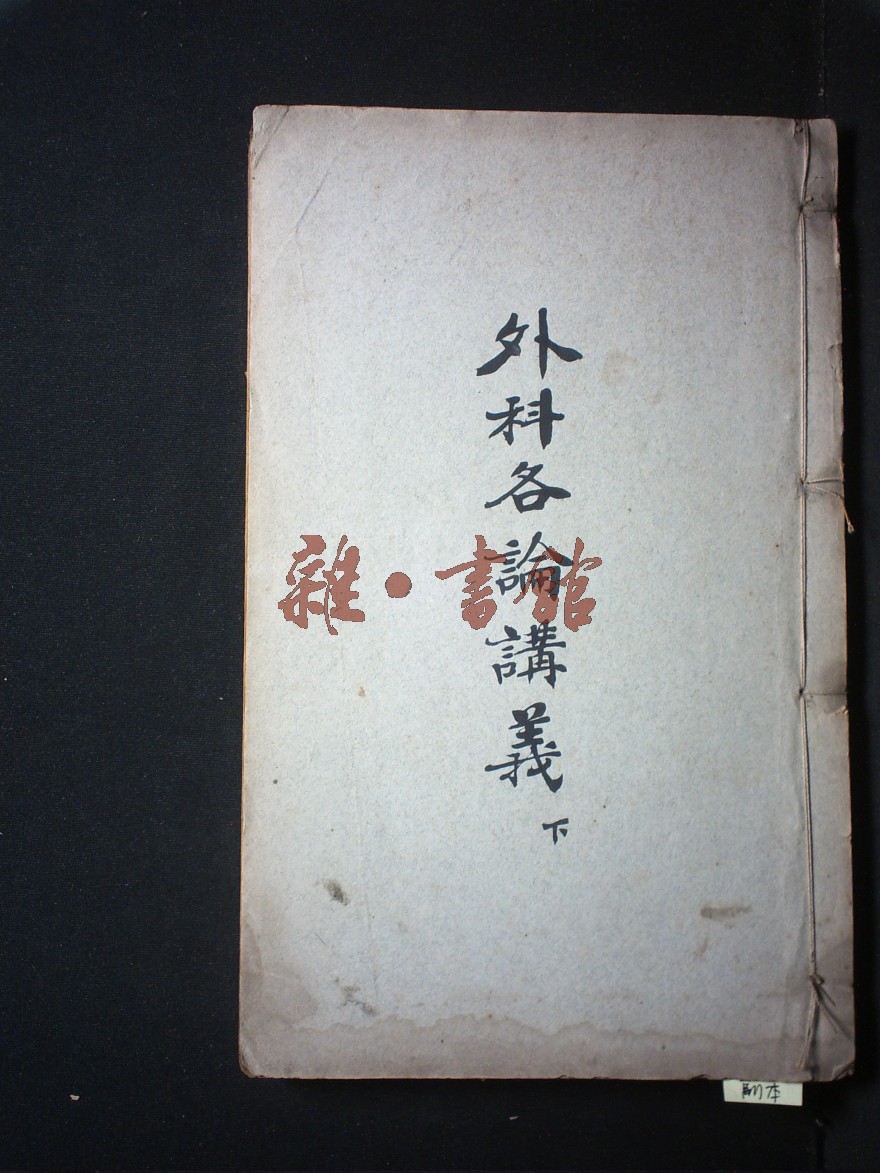 外科各論講義
下
雜·書館
副本